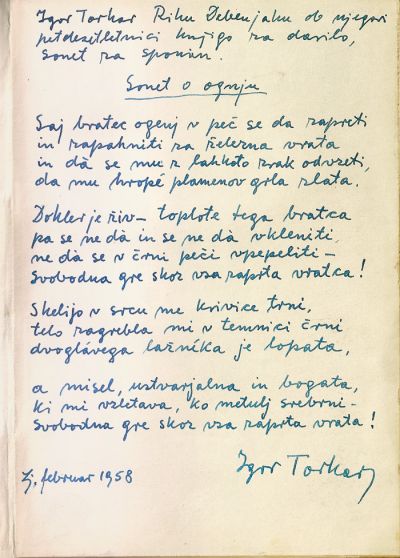 Igor Torkar Riku Debenjaku ob njegovi
petdesetletnici knjigo za darilo,
sonet za spomin.
Sonet o ognju
Saj bratec ogenj v peč se da zapreti
in zapahniti za železna vrata
in dà se mu z lahkoto zrak odvzeti,
da mu hropé plamenov grla zlata.
Dokler je živ – toplote tega bratca
pa se ne dà in se ne dà vkleniti,
ne dà se v črni peči vpepeliti –
svobodna gre skoz vsa zaprta vratca!
Skelijo v srcu me krivice trni,
telo zagrebla mi v temnici črni
dvoglávega lažnika je lopata,
a misel, ustvarjalna in bogata,
ki mi vzletava, ko metulj srebrni –
svobodna gre skoz vsa zaprta vrata!
Lj. februar 1958
Igor Torkar